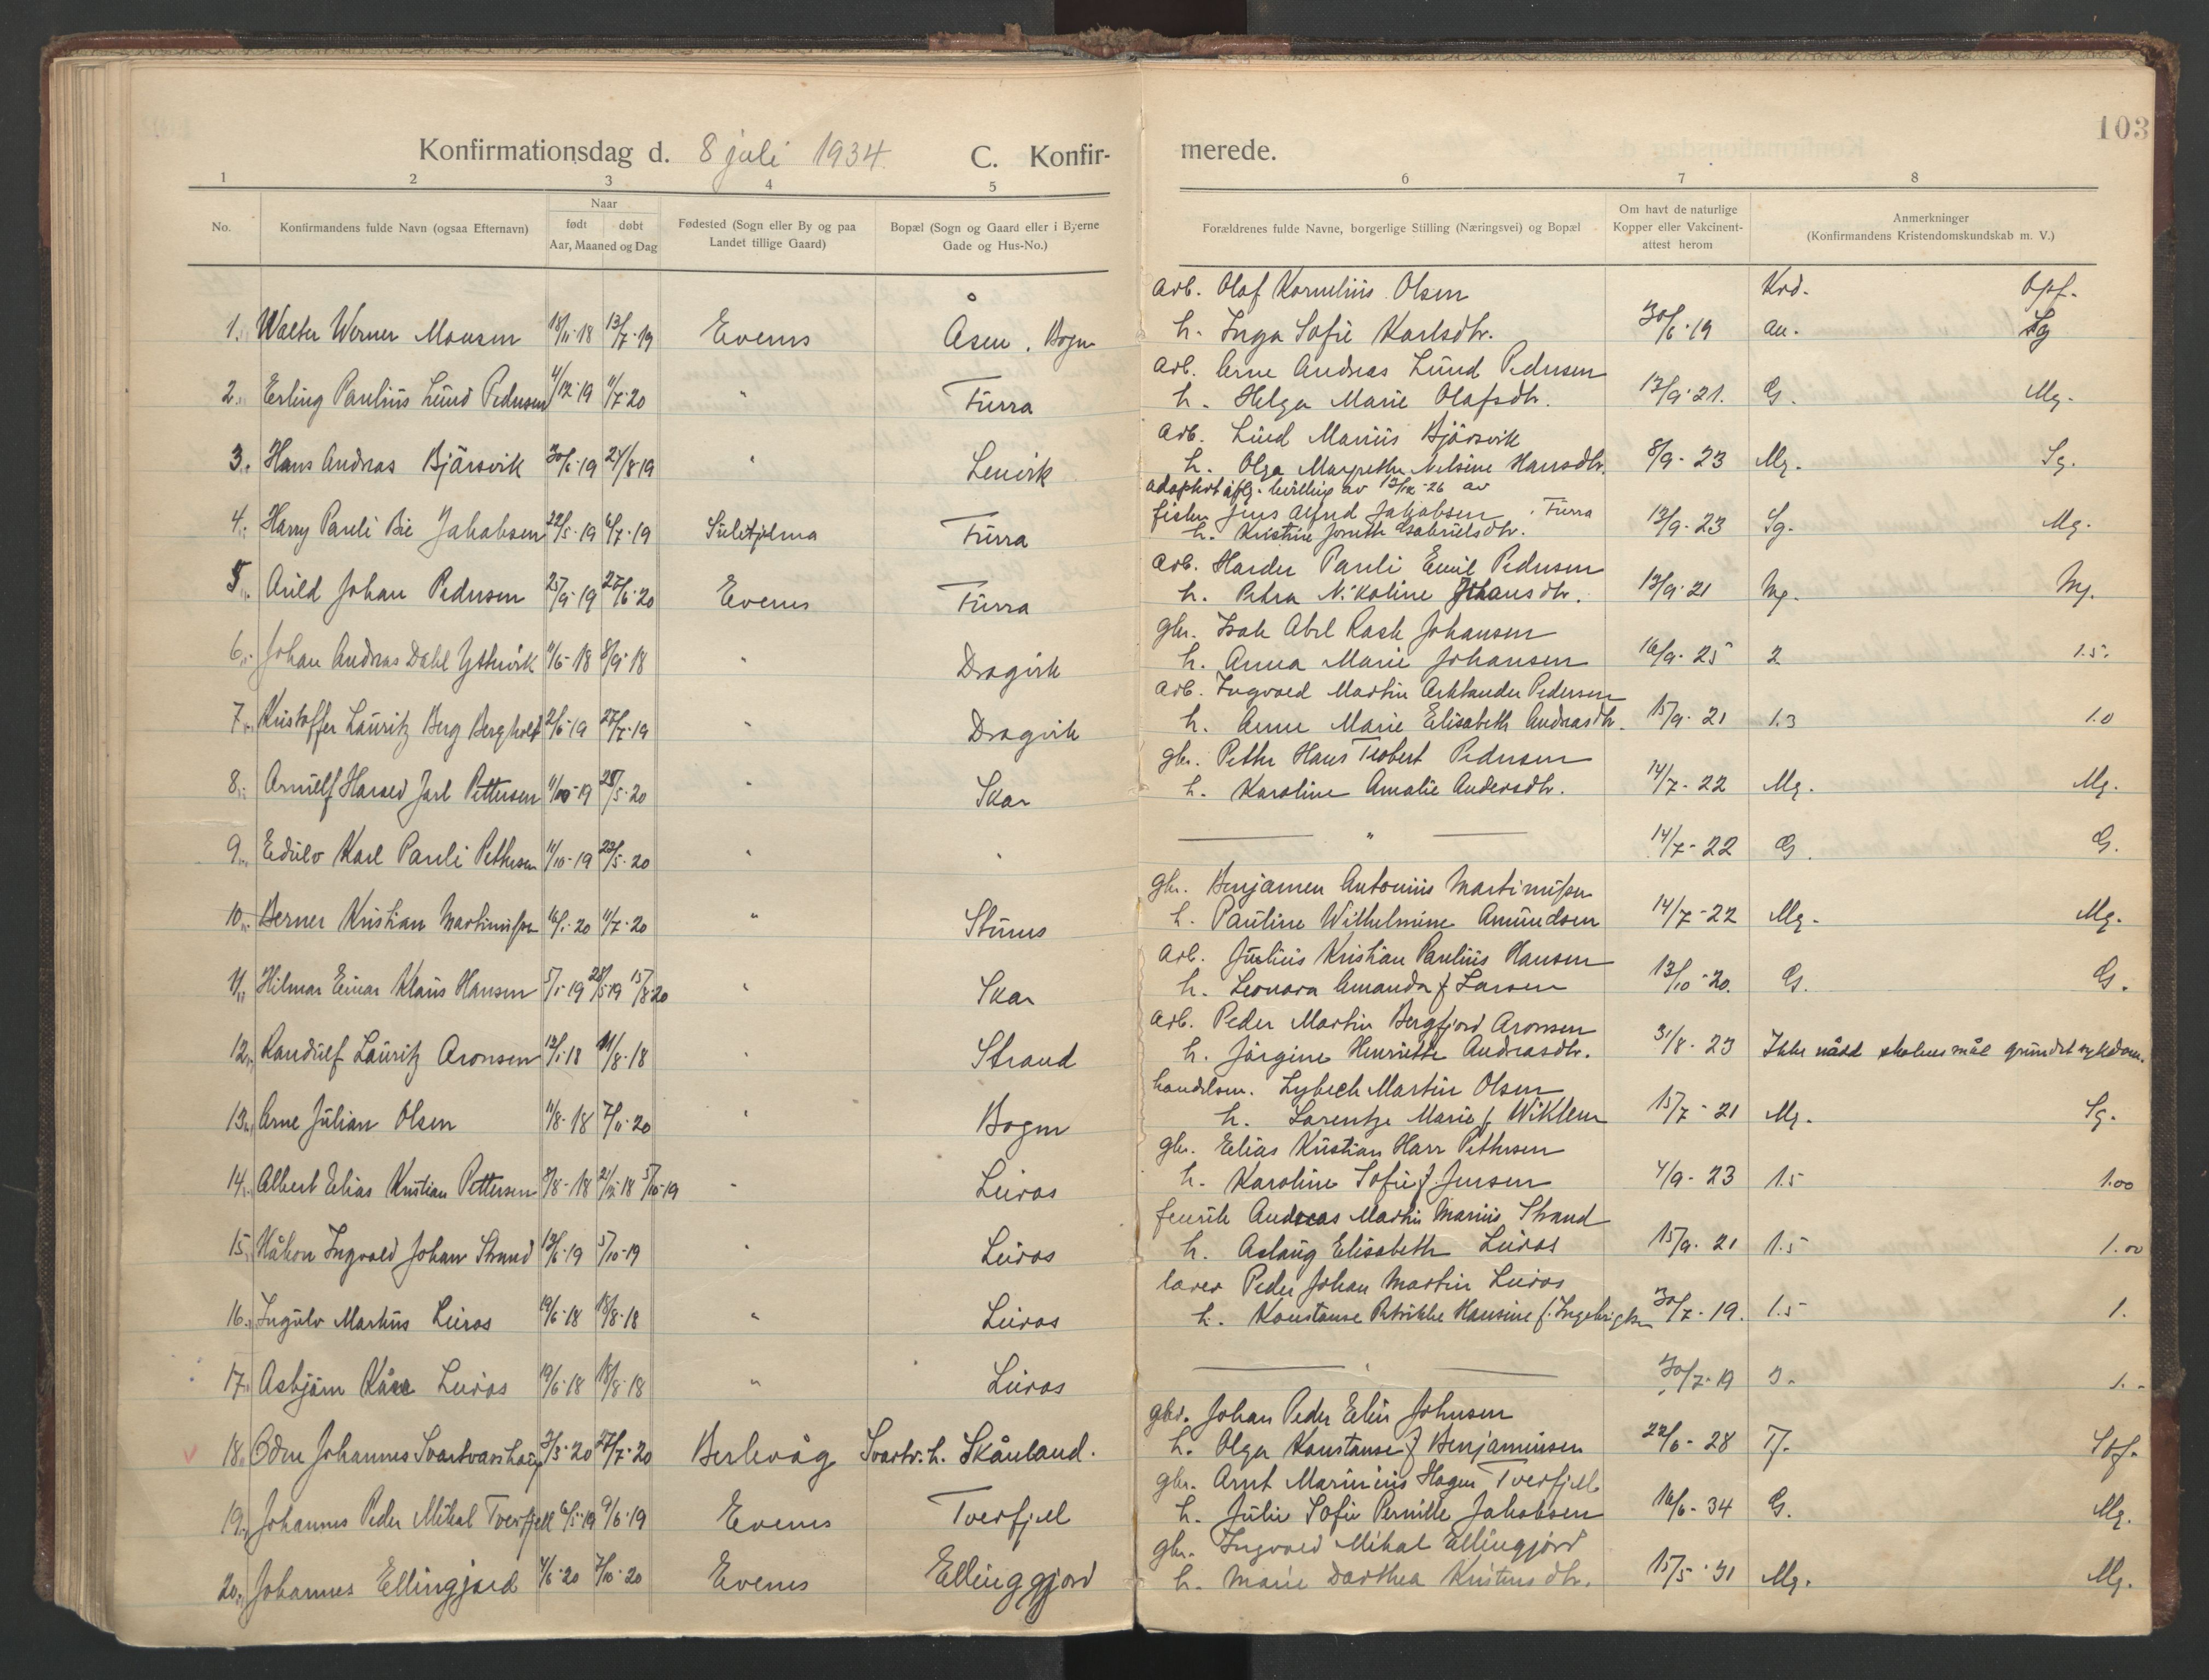 103
Konfirmationsdag d. 8 juli 1934. C. Konfir- merede.
1 2 3 4 5 6 7 8
No. Konfirmandens fulde Navn (ogsaa Efternavn) Naar født døbt Aar, Maaned og Dag Fødested (Sogn eller By og paa Landet tillige Gaard) Bopæl (Sogn og Gaard eller i Byerne Gade og Hus-No.) Forældrenes fulde Navne, borgerlige Stilling (Næringsvei) og Bopæl Om havt de naturlige Kopper eller Vakcinent-attest herom Anmerkninger (Konfirmandens Kristendomskundskab m. V.)
arb. Olaf Kornelius Olsen Krd. Opf.
1. Walter Werner Monsen 18/11-18 13/7-19 Evenes Åsen, Bogen h. Inga Sofie Karlsdtr. 30/6-19 au. Sg
arb. Arne Andreas Lund Pedersen
2. Erling Paulius Lund Pedersen 4/12-19 11/7-20 " Furra h. Helga Marie Olafsdtr. 13/9-21. G. Mg.
arb. Lind Marius Bjärsvik
3. Hans Andreas Bjärsvik 30/6-19 24/8-19 " Lenvik h. Olga Margrethe Nelsine Hansdtr. 8/9-23 Mg. Sg.
adoptert iflg. bevilling av 13/12-26 av
4. Harry Pauli Bie Jakobsen 22/5-19 6/7-19 Sulitjelma Furra fisker Jens Alfred Jakobsen, Furra
h. Kristine Josette Gabrielsdtr. 13/9-23 Sg. Mg.
arb. Harder Pauli Emil Pedersen
5. Auld Johan Pedersen 25/9-19 27/6-20 Evenes Furra h. Petra Nikoline Johansdtr. 13/9-21 Mg. Mg.
gbr. Isak Abel Rask Johansen
6. Johan Andreas Dahl Yttervik 11/6-18 8/9-18 " Dragvik h. Anna Marie Johansen 16/9-25 2 1.5.
arb. Ingvald Martin Arklander Pedersen
7. Kristoffer Lauritz Berg Bergholt 21/6-19 27/7-19 " Dragvik h. Anne Marie Elisabeth Andreasdtr. 15/9-21 1.3 1.0
gbr. Petter Hans Teobert Pedersen
8. Arnulf Harald Jarl Pettersen 11/10-19 23/5-20 " Skar h. Karoline Amalie Andersdtr. 14/7-22 Mg. Mg.
9. Eidulv Karl Pauli Pettersen 11/10-19 23/5-20 " " " 14/7-22 G. G.
gbr. Benjamen Antonius Martinussen
10. Berner Kristian Martinussen 16/1-20 11/7-20 " Stunes h. Pauline Wilhelmine Amundsen 14/7-22 Mg. Mg.
arb. Julius Kristian Paulius Hansen
11. Hilmar Einar Klaus Hansen 5/1-19 28/5-19 15/8-20 " Skar h. Leonora Amanda f. Larsen 13/10-20. G. G.
arb. Peder Martin Bergfjord Aronsen
12. Randulf Lauritz Aronsen 12/1-18 11/8-18 " Strand h. Jörgine Henriette Andreasdtr. 31/8-23 Ikke nådd skolens mål grundet sykdom.
handelsm. Lybech Martin Olsen
13. Arne Julian Olsen 11/8-18 7/11-20 " Bogen h. Lorentze Marie f. Wiklem 15/7-21 Mg. Sg.
gbr. Elias Kristian Harr Pettersen
14. Albert Elias Kristian Pettersen 8/8-18 2/12-18 5/10-19 " Leiros h. Karoline Sofie f. Jensen 4/9-23 1.5 1.00
fenrik Andreas Martin Marius Strand
15. Håkon Ingvald Johan Strand 12/6-19 5/10-19 " Leiros h. Aslaug Elisabeth Leiros 15/9-21 1.5 1.00
lærer Peder Johan Martin Leiros
16. Ingulv Markus Leiros 19/6-18 18/8-18 " Leiros h. Konstanse Petrikke Hansine f. Ingebrigtsen 30/7-19. 1.5 1.
17. Asbjörn Kåre Leiros 19/6-18 18/8-18 " Leiros " 30/7-19 2. 1.-
gbr. Johan Peder Elin Johnsen
18. Odin Johannes Svartvasshaug 3/3-20 27/7-20 Berlevåg Svartv.h. Skånland. h. Olga Konstanse f. Benjaminsen 22/6-28 Tf. Sgf.
gbr. Arnt Marinius Hagen Tverfjell
19. Johannes Peder Mikal Tverfjell 6/5-19 9/6-19 Evenes Tverfjell h. Julie Sofie Pernille Jakobsen 16/6-34 G. Mg.
gbr. Ingvald Mikal Ellingjord
20. Johannes Ellingjord 4/6-20 3/10-20 Evenes Ellinggjord h. Marie Dorthea Kristensdtr. 15/5-31 Mg. Mg.